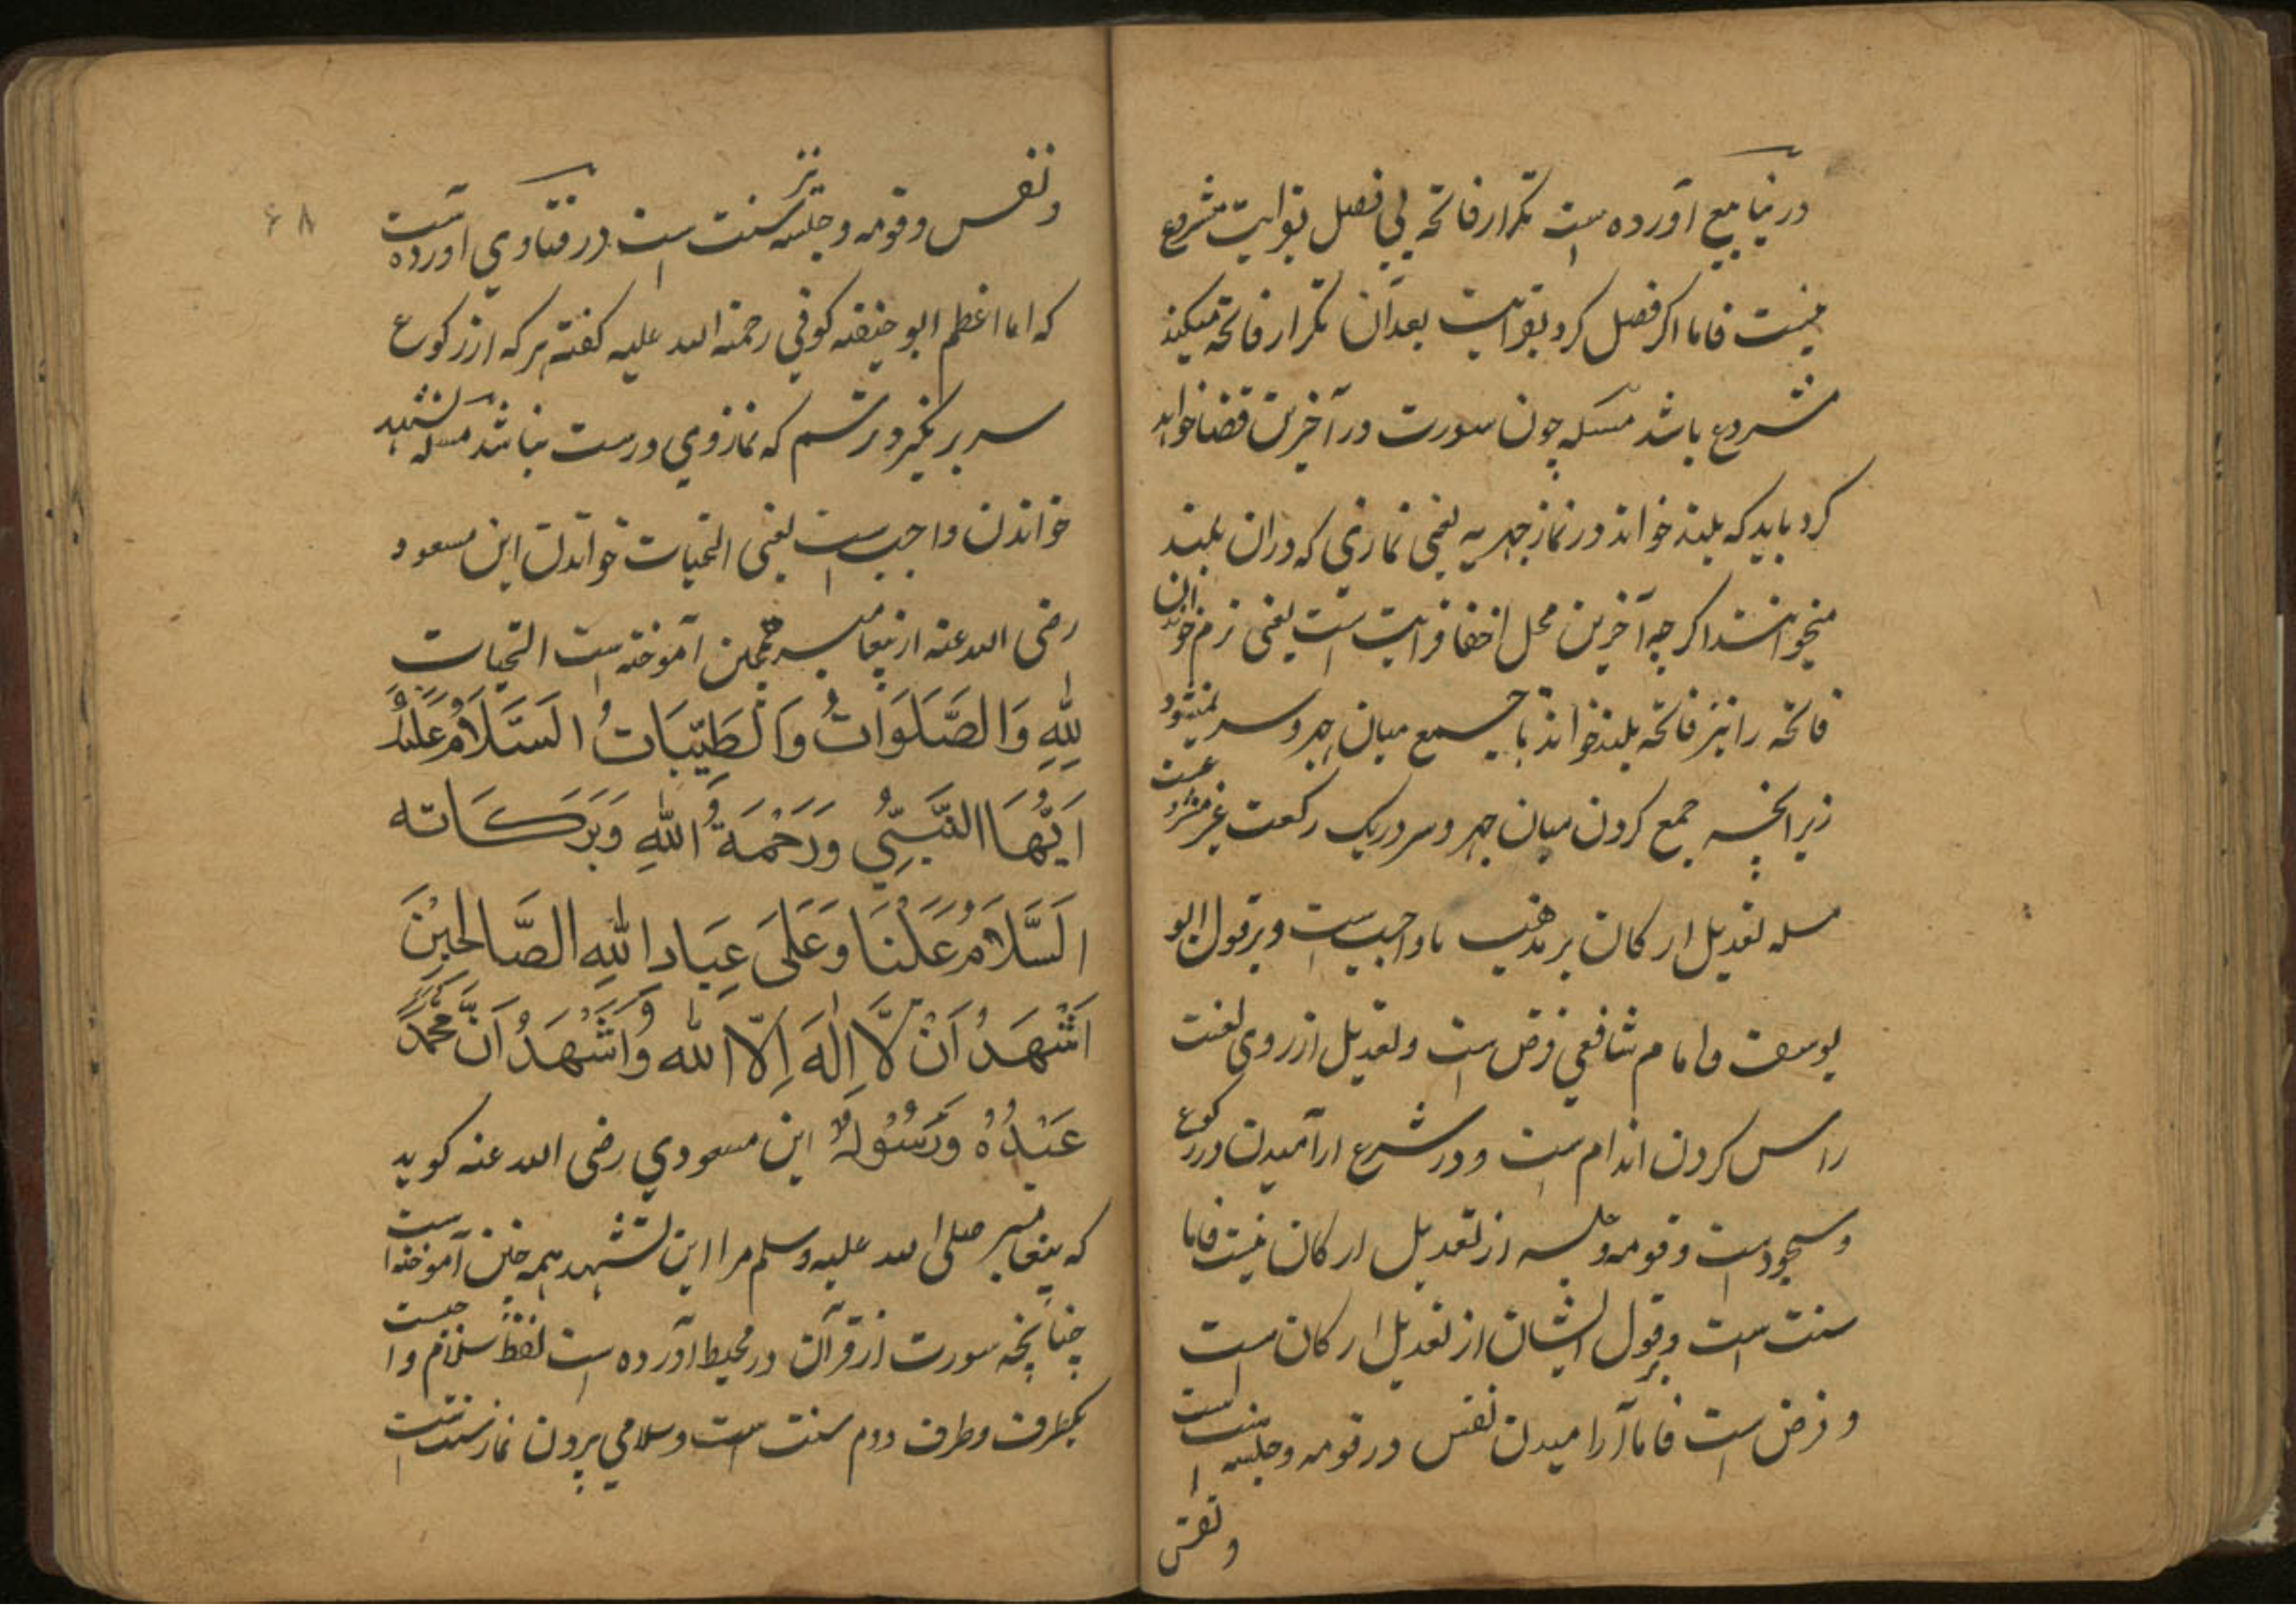 در ینابیع آورده است تکرار فاتحه بی فصل بقرایت مشروع
نیست فاما اکر فصل کرد بقرایت بعد آن تکرار فاتحه میکند
مشروع باشد مسئله چون سورت در آخرین قضا خواهد
کرد باید که بلند خواند در نماز جهریه یعنی نمازی که دران بلند
میخوانند اکرچه آخرین محل اخفا قرایت است یعنی نرم خواندن
فاتحه را نیز فاتحه بلند خواند تا جمع میان جهر و سر نمیشود
زیرا نچه جمع کردن میان جهر و سر در یک رکعت غیر مشروعست
مسله تعدیل ارکان بر مذهب ما واجب است و بر قول ابو
یوسف و امام شافعی فرض است و تعدیل از روی لغت
راس کردن اندام است و در شرع ارامیدن در رکوع
و سجود است و قومه و جلسه از تعدیل ارکان نیست فاما
سنت است و بر قول ایشان از تعدیل ارکان است
و فرض است فاما آرامیدن نفس در قومه و جلسه سنت است
و نفس
و نفس و قومه و جلسه نیز سنت است در فتاوی آورده است
که اما اعظم ابو حنیفه کوفی رحمة الله علیه کفته هر که از رکوع
سر بر نکیرد ترسم که نماز وی درست نباشد مسله تشهد
خواندن واجب است یعنی التحیات خواندن ابن مسعود
رضی الله عنه از پیغامبر همچنین آموخته است التحیات
لِلّٰهِ وَالصَّلَوَاتُ وَالطَّیِّبَاتُ اَلسَّلَامُ عَلَیْكَ
اَیُّهَا النَّبِیُّ وَرَحْمَةُ اللّٰهِ وَبَرَكَاته
اَلسَّلَامُ عَلَیْنَا وَعَلَی عِبَادِ اللّٰهِ الصَّالِحِیْنَ
اَشْهَدُ اَنْ لَّا اِلٰهَ اِلَّا اللّٰه وَاَشْهَدُ اَنَّ مُحَمَّدً
عَبْدُهُ وَرَسُوْلُهُ ابن مسعودی رضی الله عنه کوید
که پیغامبر صلی الله علیه وسلم مرا این تشهد همچنین آموخته است
چنانچه سورت از قرآن در محیط آورده است لفظ سلام واجبست
یکطرف و طرف دوم سنت است و سلامی برون نماز سنت است
۶۸